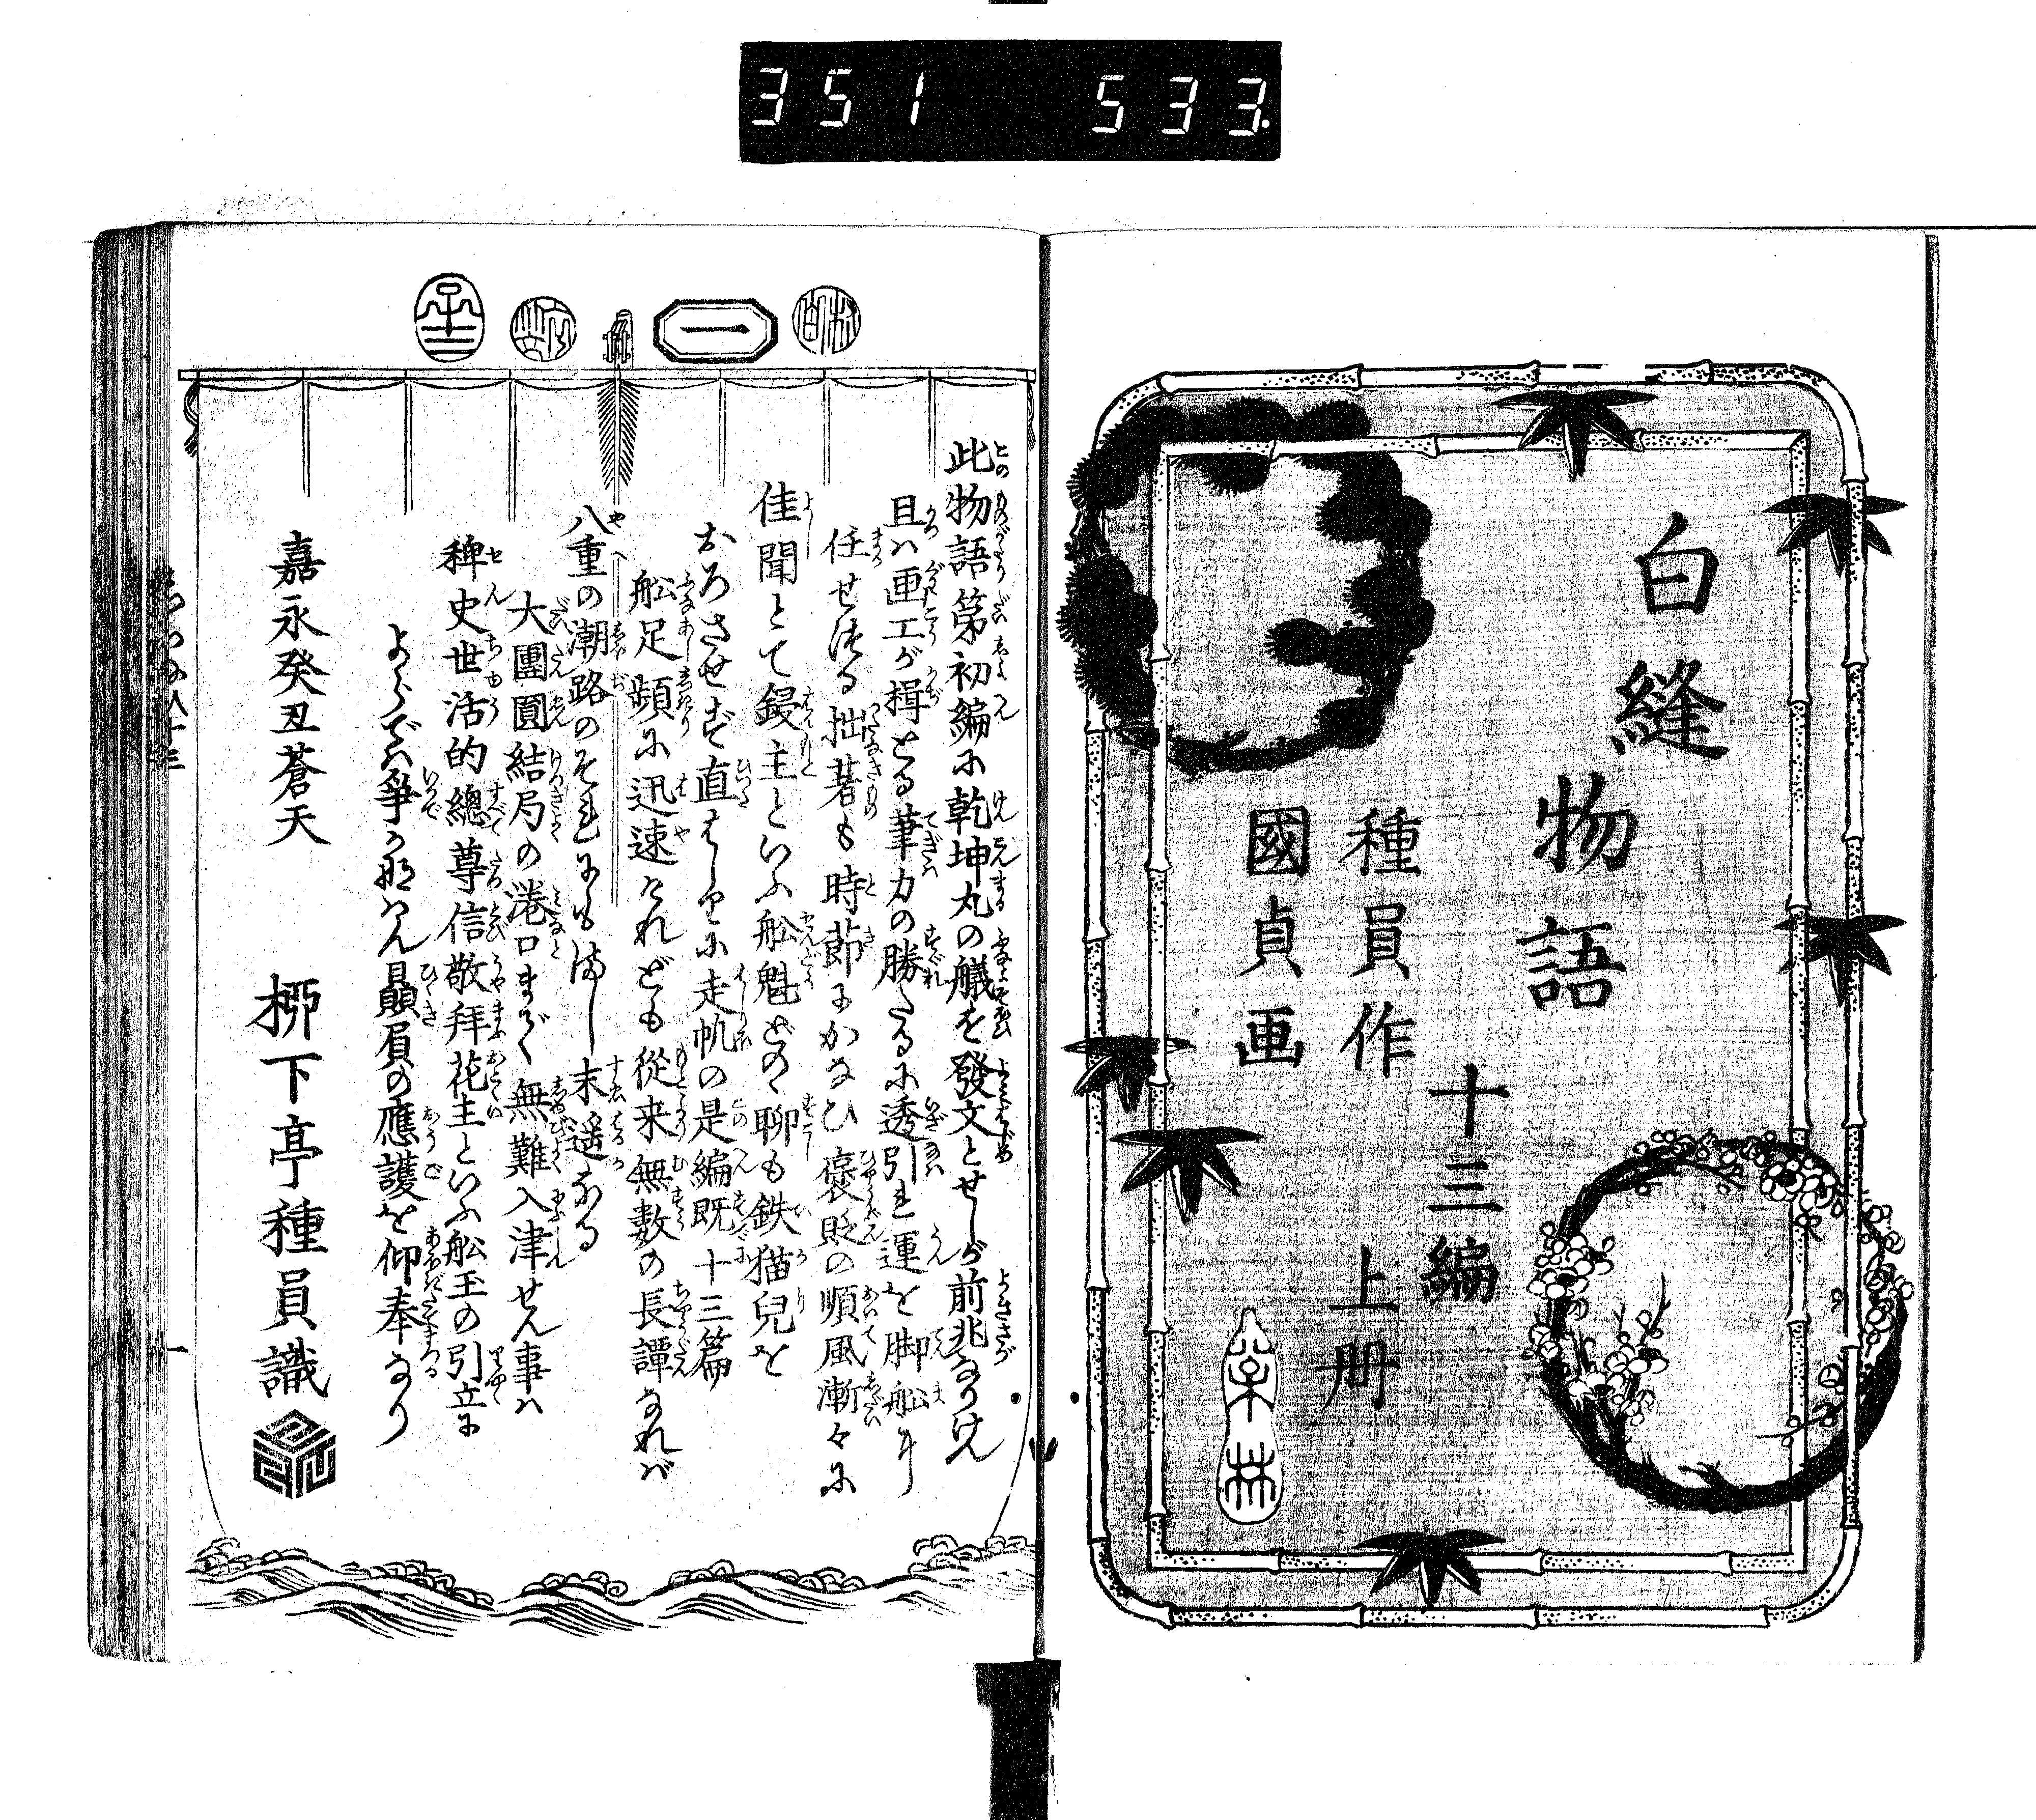 351 533.
白縫
物語
十三編
上册
種員作
國貞画
一
此物語第初編に乾坤丸の艤を發文とせしが前兆なりけん
且ハ画工が楫とる筆力の勝たるに透引れ運を脚船に
任せぬる拙著も時節にかなひ褒貶の順風漸々に
佳聞とて鋟主といふ舩魁どの聊も鉄猫兒を
おろさせず直ばしりに走帆の是編既十三篇
舩足頻に迅速けれども從来無數の長譚なれバ
八重の潮路のそれにもまし末遥なる
大團圓結局の港口まで無難入津せん事ハ
稗史世活的總尊信敬拜花主といふ舩玉の引立に
よらでハ爭か那はん贔屓の應護を仰奉るなり
嘉永癸丑蒼天
柳下亭種員識